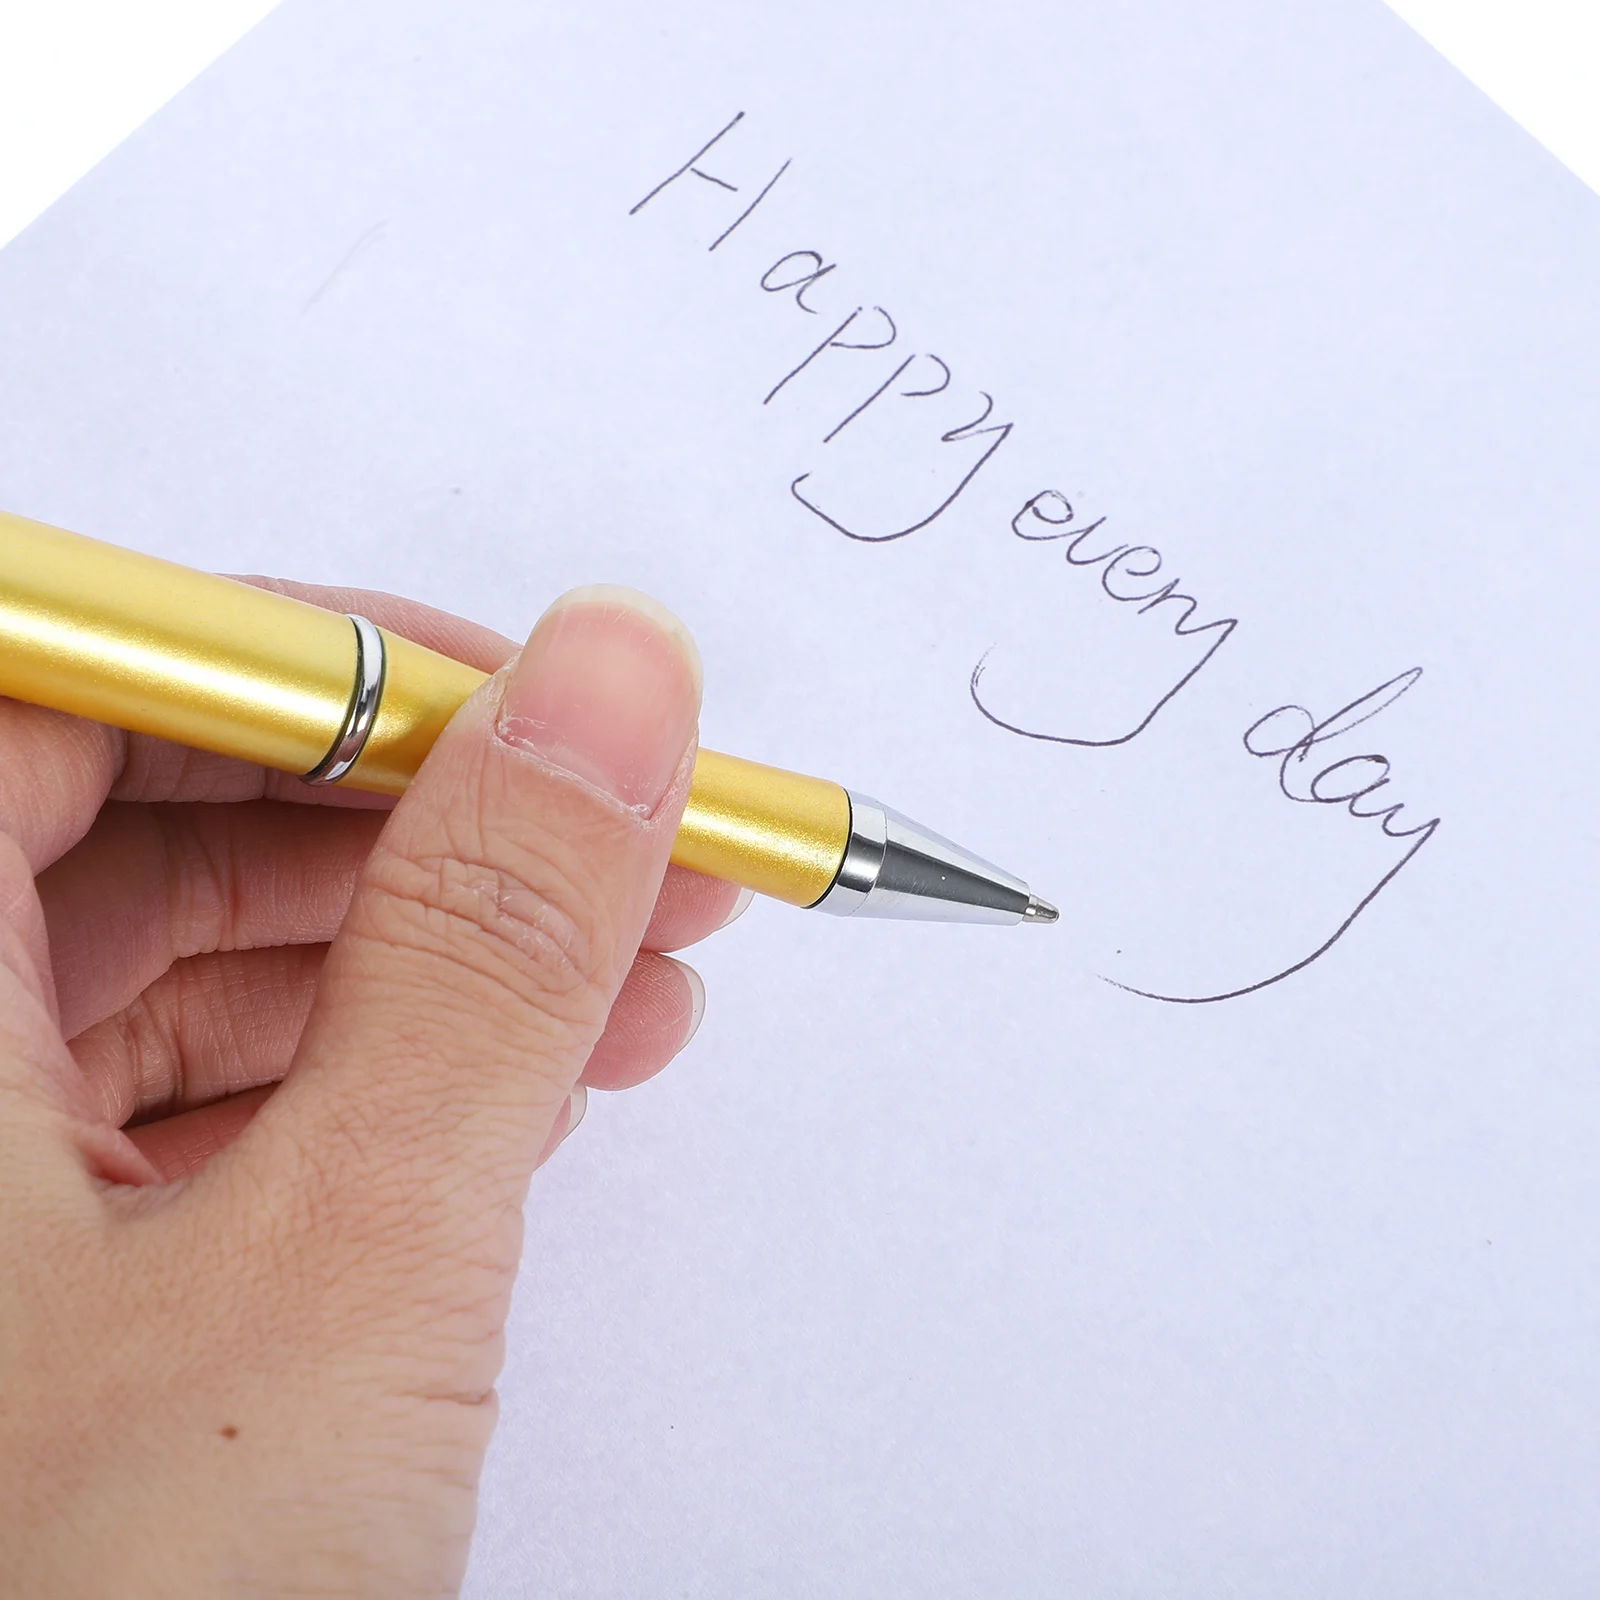 Happy every day